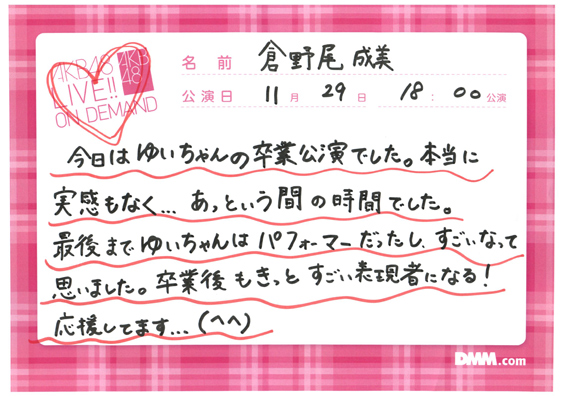 AKB48
LIVE!!
ON DEMAND
AKB
48
名前 倉野尾 成美
公演日 11月 29日 18:00公演
今日はゆいちゃんの卒業公演でした。本当に
実感もなく… あっという間の時間でした。
最後までゆいちゃんはパフォーマーだったし、すごいなって
思いました。卒業後もきっとすごい表現者になる!
応援してます…(へへ)
DMM.com